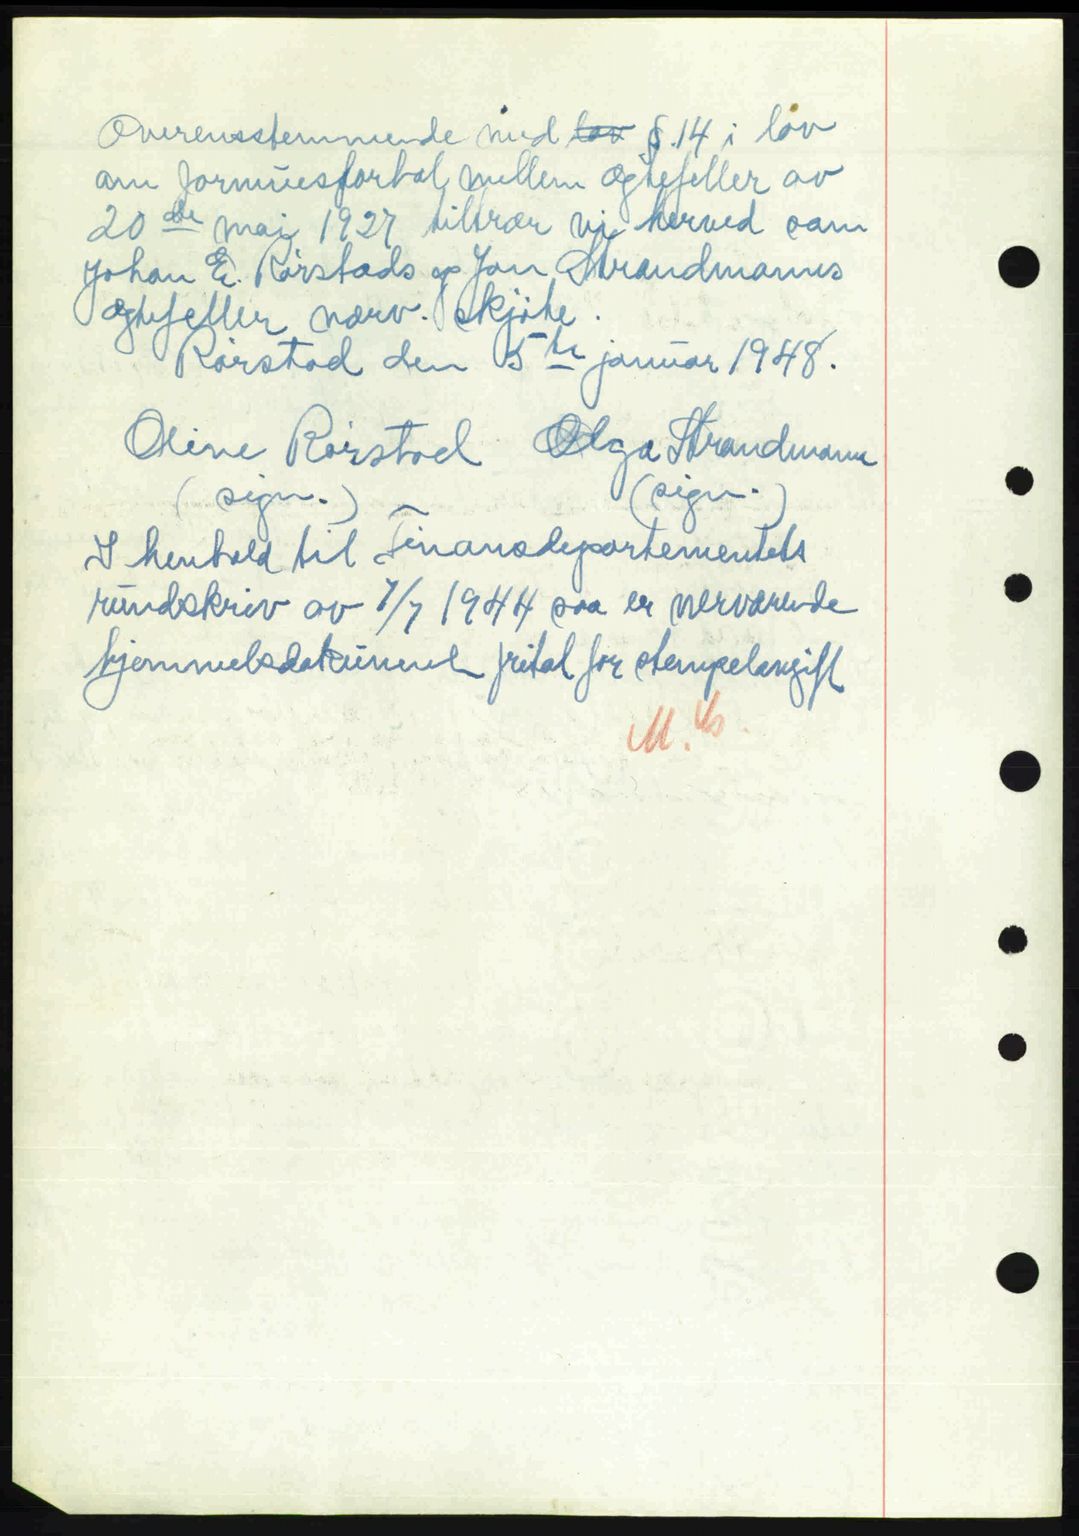 Overensstemmende med lov §.14 i lov
om formuesforhol mellem ægtefeller av
20 de mai 1927 tiltrær vi herved som
Johan E. Rørstads og Jon Strandmanns
ægtefeller nærv. skjøte.
Rørstad den 5 te januar 1948.
Oline Rørstad Olga Strandmann
(sign.) (sign.)
I henhold til Finansdepartementets
rundskriv av 7/7 1944 saa er nerværende
hjemmelsdokument frital for stempelavgift